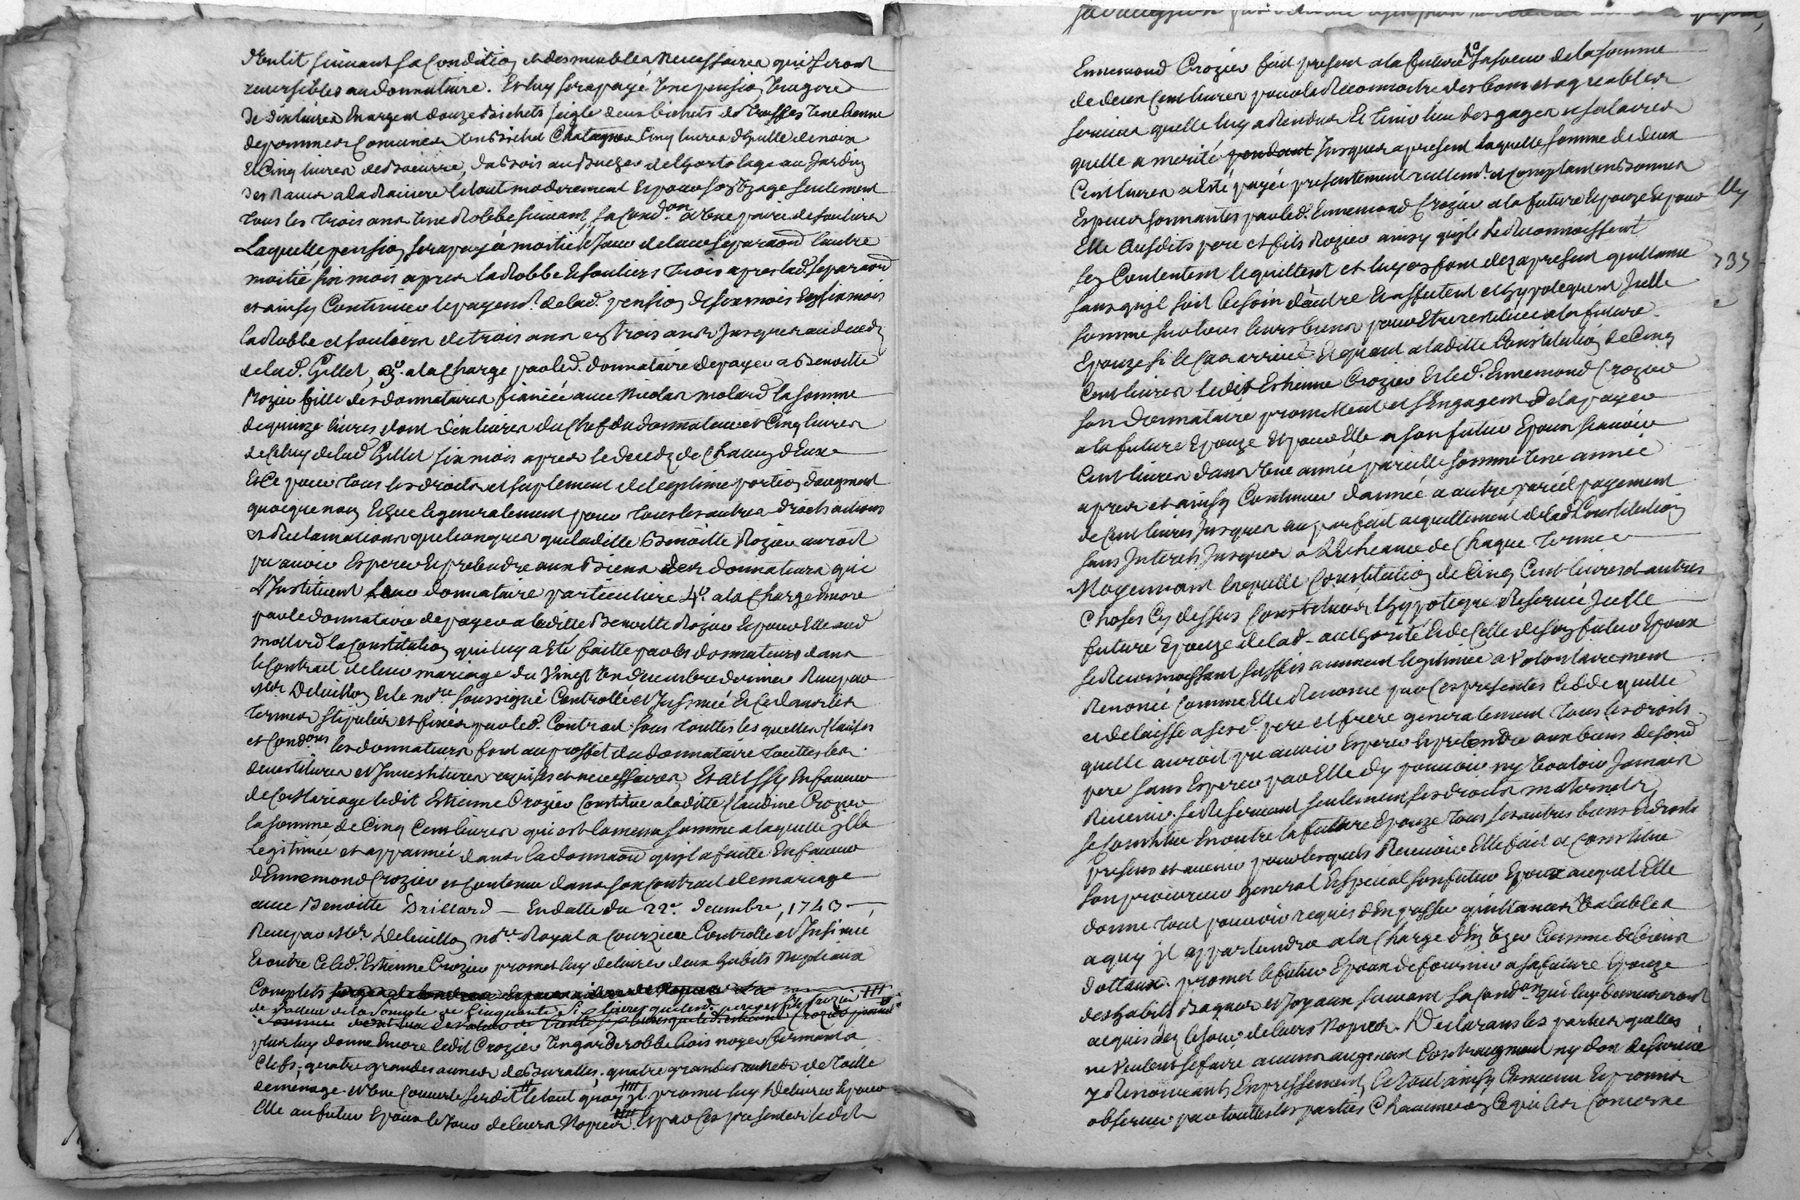 d'Enlit suivant sa condition et des meubles necessaires qui seront
reversibles au donnataire. Et luy sera payé une pension viagere
de dix livres en argent douze bichets seigle deux bichets de truffes une benne
de pommes communes un bichet chatagnes cinq livres d'huille de noix
et cinq livres de beurre, du bois au bucher de l'hortolage au jardin
des raves a la raviere le tout moderement et pour son uzage seulement
tous les trois ans une robbe suivant sa cond.on et une paire de souliers
Laquelle pension sera payé moitié le jour de leur separaon l'autre
moitié six mois apres la robbe et souliers trois apres lad. separaon
et ainsy continuer le payem.t de lad. pension de six mois en six mois
la robbe et souliers de trois ans en trois ans jusques au deceds
de lad. Gillet, 3°. a la charge par led. donnataire de payer a Benoitte
Rozier fille des donnataires fiancée avec Nicolas Molard la somme
de quinze livres dont dix livres du chef du donnateur et cinq livres
de celuy de lad. Gillet six mois apres le deceds de chacun d'eux
Et ce pour tous les droits et suplement de legitime portion d'augment
quoique non echue et generalement pour tous les autres droits actions
et reclamations quelconques que laditte Benoitte Rozier auroit
pu avoir esperer et pretendre aux biens des donnateurs qui
l'instituent leur donnataire particuliere 4°. a la charge encore
par le donnataire de payer a laditte Benoitte Rozier et pour elle aud
Mollard la constitution qui luy a eté faitte par les donnateurs dans
le contrat de leur mariage du vingt un decembre dernier Reçu par
Me. Deleullion et le no.re soussigné controllé et insinué et ce dans les
termes stipulés et fixés par led. contrat. sous touttes lesquelles clauses
et cond.ons les donnateurs font au proffit du donnataire touttes les
devestitures et investitures requises et necessaires, Et aussy en faveur
de ce mariage ledit Estienne Crozier constitue a laditte Claudine Crozier
la somme de cinq cent livres qui est la meme somme a laquelle il l'a
legitimée et appanée dans la donnaon qu'il a faitte en faveur
d'Ennemond Crozier et contenue dans son contrat de mariage
avec Benoitte Brillard — En datte du 22e. decembre, 1743 —
Reçu par Me. Deleullion no.re Royal a Courzieu controllé et insinué
Et outre ce led. Estienne Crozier promet luy delivrer deux habits nuptiaux
Complets
de valleur de la somme de cinquante six livres
plus luy donne encore ledit Crozier un garderobbe bois noyer fermant a
Clefs, quatre grandes aunes de buratte, quatre grandes aunes de toille
de menage et une couverte ledit le tout qu'il promet luy delivrer et pour
Elle au futur epoux le jour de leurs nopces. Et par ces presentes ledit
Ennemond Crozier fait present a la future sa soeur de la somme
de deux cent livres pour la reconnoitre des bons et agreables
services quelle luy a rendus et tenir lieu des gages et salaires
quelle a merité pendant jusques a present laquelle somme de deux
cent livres a eté payée presentement reellem.t et comptant en bonnes
especes sonnantes par led. Ennemond Crozier a la future epouze et pour
Elle ausdits pere et fils Rozier ainsy qu'ils le reconnoissent
sen contentent le quittent et luy en font dez a present quittance
sans qu'il soit besoin d'autre et affectent et hypotequent icelle
somme sur tous leurs biens pour etre restituée a la future
Epouze si le cas arrive. Et quant a laditte constitution de cinq
cent livres ledit Estienne Crozier et led. Ennemond Crozier
son donnataire promettent et s'engagent de la payer
a la future epouze et pour elle a son futur epoux scavoir
cent livres dans une année pareille somme une année
apres et ainsy continuer d'année a autre pareil payement
de cent livres jusques au parfait acquittement de lad. constitution
sans interets jusques a l'echeance de chaque terme
Moyennant laquelle constitution de cinq cent livres et autres
choses cy dessus constituées l'hypoteque reservée icelle
future epouze de lad. authorité et de celle de son futur epoux
se reconnoissant suffisamment legitimée a volontairement
renoncé comme elle renonce par ces presentes cedde quitte
et delaisse a sesd. pere et frere generalement tous les droits
quelle auroit pu avoir esperer et pretendre aux biens de sond
pere sans esperer par elle d'y pouvoir ny vouloir jamais
revenir. se reservant seulement ses droits maternels,
se constitue en outre la future epouze tous ses autres biens et droits
presens et avenir pour lesquels recevoir elle fait et constitue
son procureur general et special son futur epoux auquel elle
donne tout pouvoir requis d'en passer quittances valables
a qui il appartiendra a la charge d'en uzer comme de biens
dottaux. promet le futur epoux de fournir a sa future epouze
des habits bagues et joyaux suivant sa cond.on qui luy demeureront
acquis dez le jour de leurs nopces. Declarans les parties quelles
ne veulent se faire aucun augment contraugment ny don de survie
y renonceants expressement, le tout ainsy convenu et promis
observer par touttes les parties chacune en ce qui les concerne
735